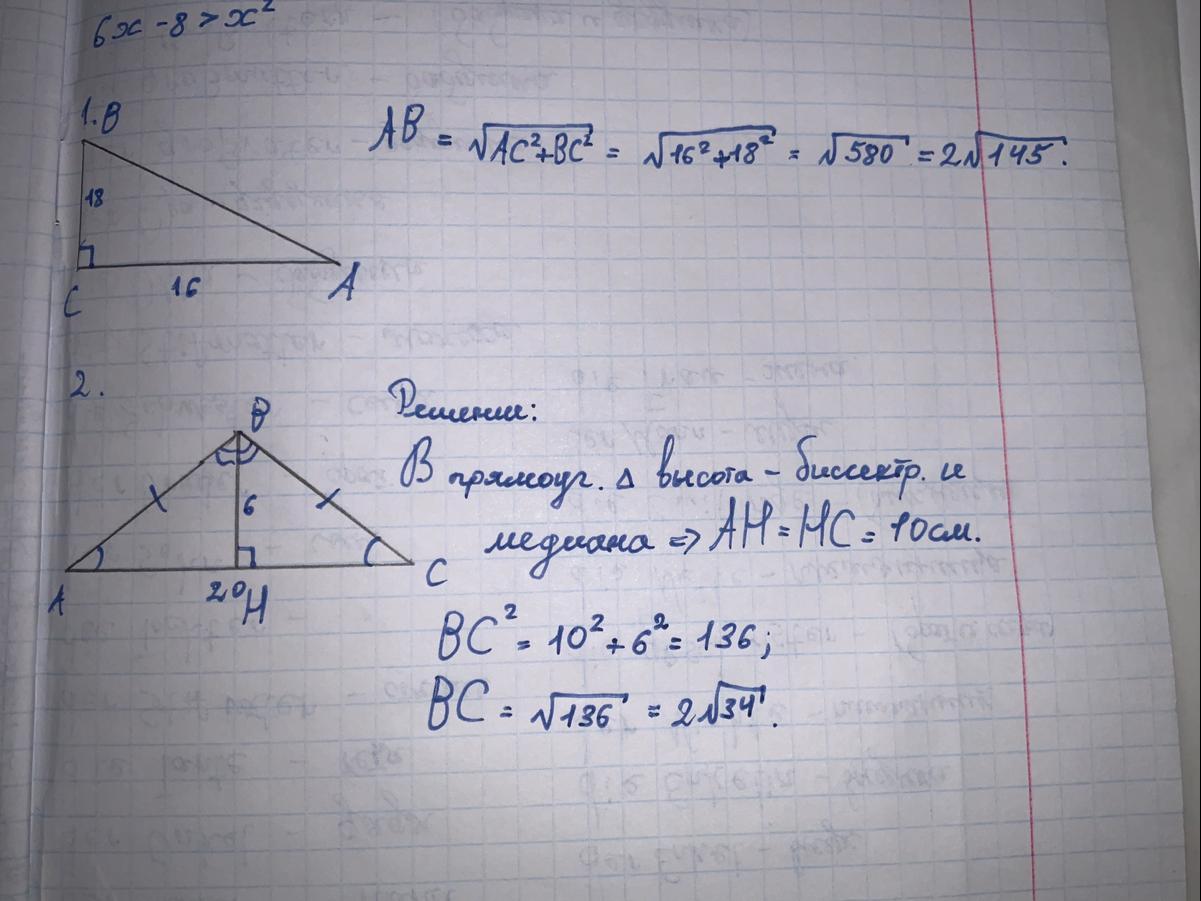 6x - 8 > x²
1. B
AB = √AC²+BC² = √16²+18² = √580 = 2√145.
18
C 16 A
2.
B
Решение:
В прямоуг. Δ высота - биссектр. и
6
медиана => AH = HC = 10см.
A 20 H C
BC² = 10² + 6² = 136;
BC = √136 = 2√34.